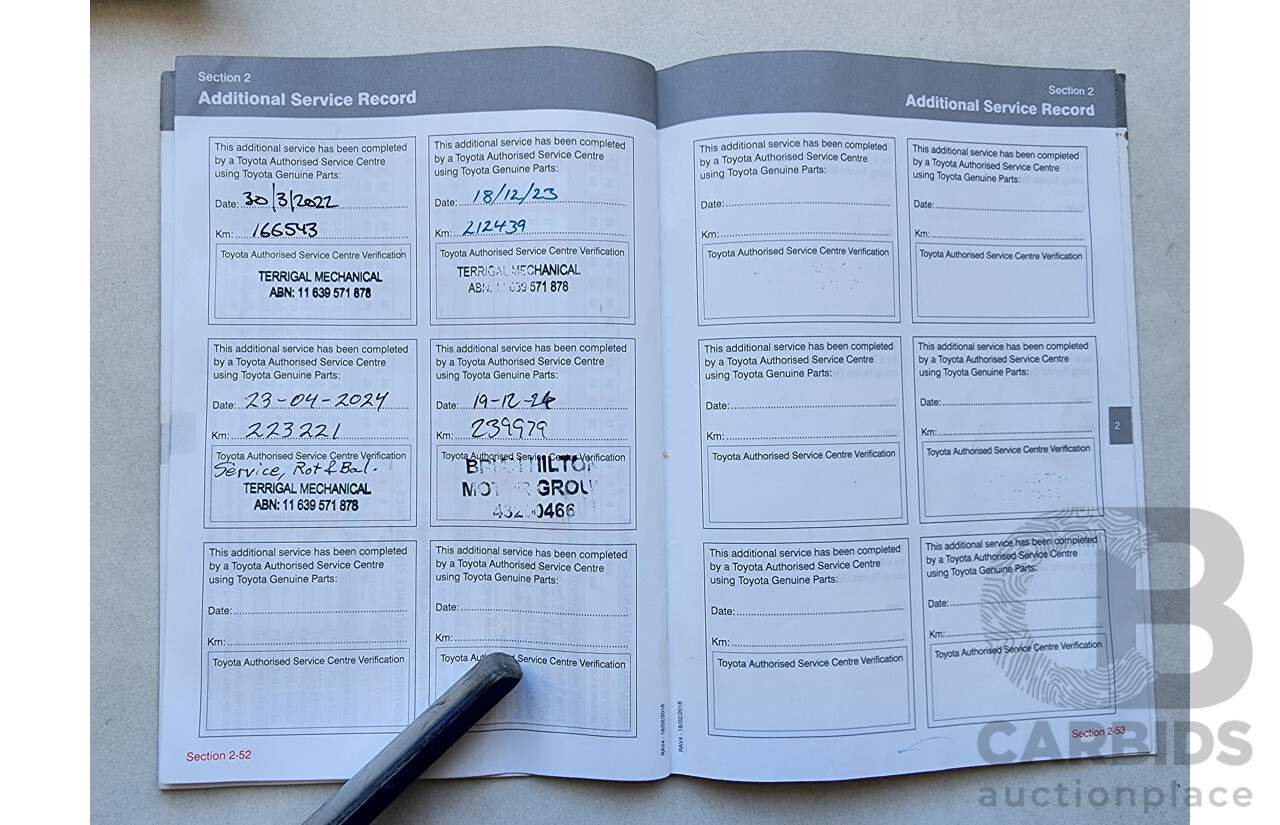 Section 2
Additional Service Record
This additional service has been completed
by a Toyota Authorised Service Centre
using Toyota Genuine Parts:
Date: 30/3/2022
Km: 166543
Toyota Authorised Service Centre Verification
TERRIGAL MECHANICAL
ABN: 11 639 571 878
This additional service has been completed
by a Toyota Authorised Service Centre
using Toyota Genuine Parts:
Date: 18/12/23
Km: 212439
Toyota Authorised Service Centre Verification
TERRIGAL MECHANICAL
ABN: 11 639 571 878
This additional service has been completed
by a Toyota Authorised Service Centre
using Toyota Genuine Parts:
Date: 23-04-2024
Km: 223221
Toyota Authorised Service Centre Verification
Service, Rot & Bal.
TERRIGAL MECHANICAL
ABN: 11 639 571 878
This additional service has been completed
by a Toyota Authorised Service Centre
using Toyota Genuine Parts:
Date: 19-12-24
Km: 239979
Toyota Authorised Service Centre Verification
This additional service has been completed
by a Toyota Authorised Service Centre
using Toyota Genuine Parts:
Date:
Km:
Toyota Authorised Service Centre Verification
This additional service has been completed
by a Toyota Authorised Service Centre
using Toyota Genuine Parts:
Date:
Km:
Service Centre Verification
Section 2-52
RAV4 - 16/02/2016
Section 2
Additional Service Record
This additional service has been completed
by a Toyota Authorised Service Centre
using Toyota Genuine Parts:
Date:
Km:
Toyota Authorised Service Centre Verification
This additional service has been completed
by a Toyota Authorised Service Centre
using Toyota Genuine Parts:
Date:
Km:
Toyota Authorised Service Centre Verification
This additional service has been completed
by a Toyota Authorised Service Centre
using Toyota Genuine Parts:
Date:
Km:
Toyota Authorised Service Centre Verification
This additional service has been completed
by a Toyota Authorised Service Centre
using Toyota Genuine Parts:
Date:
Km:
Toyota Authorised Service Centre Verification
2
This additional service has been completed
by a Toyota Authorised Service Centre
using Toyota Genuine Parts:
Date:
Km:
Toyota Authorised Service Centre Verification
This additional service has been completed
by a Toyota Authorised Service Centre
using Toyota Genuine Parts:
Date:
Km:
Toyota Authorised Service Centre Verification
RAV4 - 16/02/2016
Section 2-53
CB
CARBIDS
auctionplace